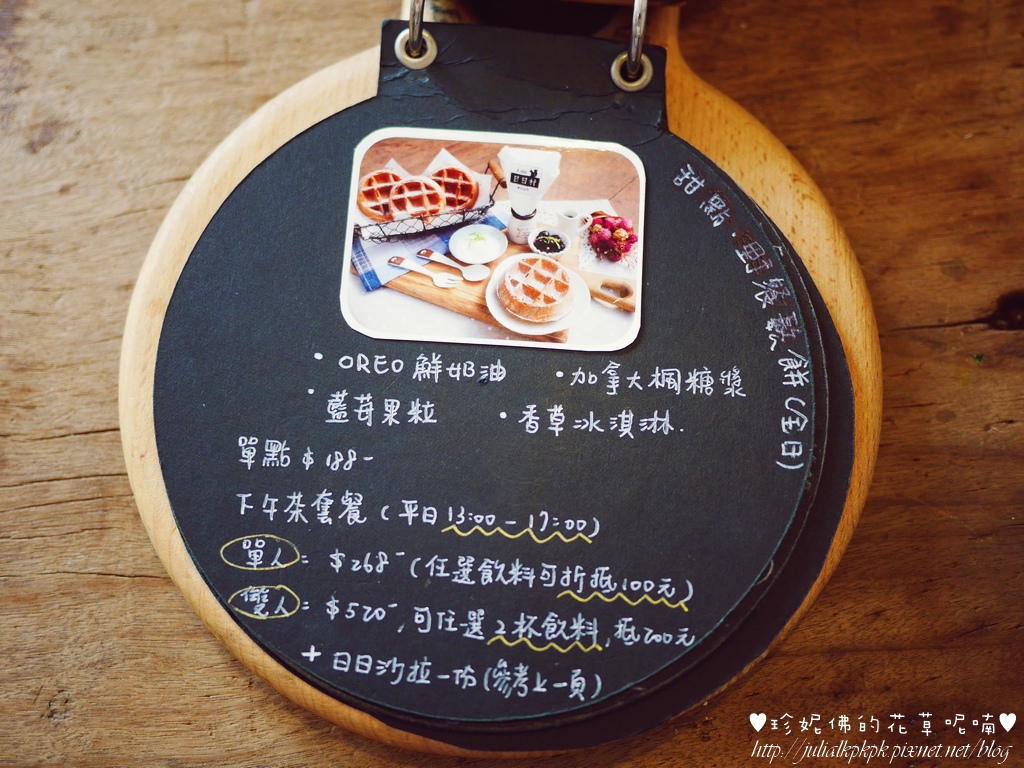 甜點.單餐鬆餅(全日)
• OREO 鮮奶油 • 加拿大楓糖漿
• 藍莓果粒 • 香草冰淇淋.
單點 $188-
下午茶套餐 (平日 13:00-17:00)
單人 = $268- (任選飲料可折抵100元)
雙人 = $520-, 可任選2杯飲料, 抵200元
+ 日日沙拉一份 (參考上一頁)
♥珍妮佛的花草呢喃♥
http://julialkpkpk.pixnet.net/blog